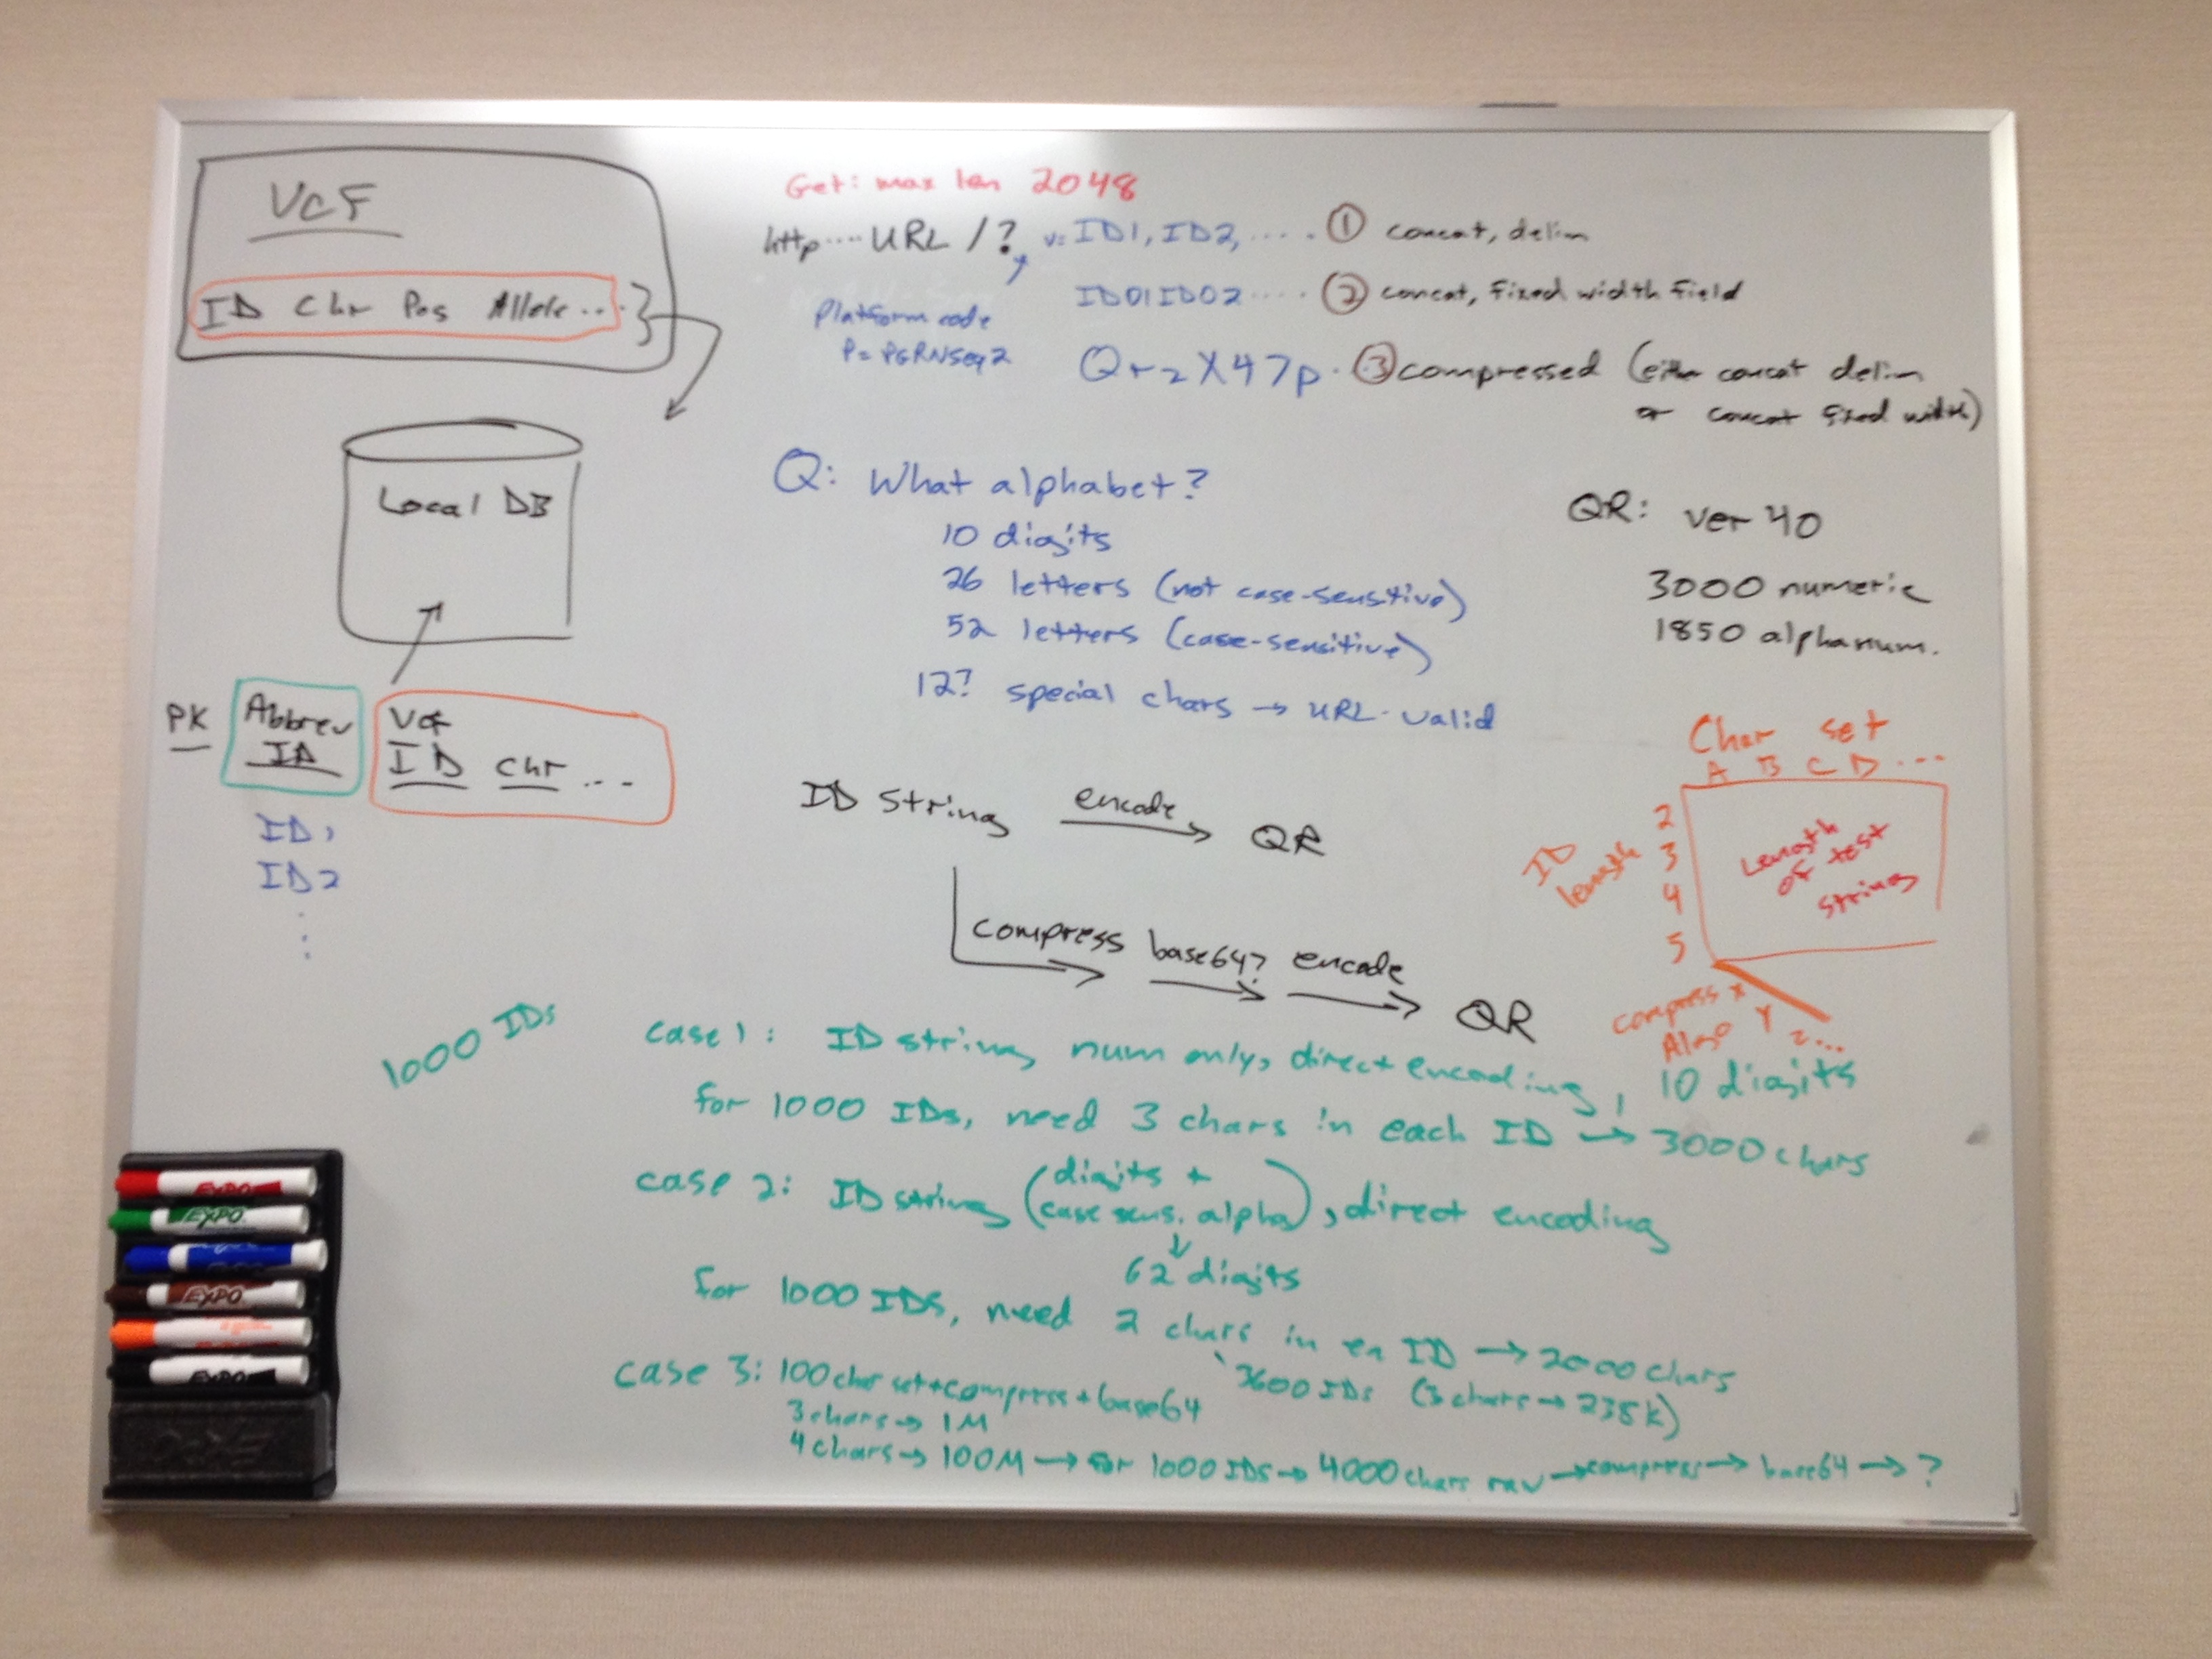 VCF
ID Chr Pos Allele...
Local DB
PK Abbrev ID
VCF ID Chr ...
ID1
ID2
Get: max len 2048
http.... URL /? v= ID1, ID2, ..... ① concat, delim
ID01ID02 .... ② concat, fixed width field
Platform code
P= PGRNSeq2
Qr2X47p. ③ compressed (either concat delim
or concat fixed width)
Q: What alphabet?
10 digits
26 letters (not case-sensitive)
52 letters (case-sensitive)
12? special chars → URL-valid
QR: ver 40
3000 numeric
1850 alphanum.
ID String encode → QR
compress → base64? → encode → QR
Char set
A B C D ...
ID length
2
3
4
5
Length
of test
strings
compress Algo
X
Y
Z...
1000 IDs
case 1: ID string num only, direct encoding, 10 digits
for 1000 IDs, need 3 chars in each ID → 3000 chars
case 2: ID string (digits + case sens. alpha), direct encoding
↓
62 digits
for 1000 IDs, need 2 chars in ea ID → 2000 chars
3600 IDs (3 chars → 238k)
case 3: 100 char set + compress + base64
3 chars → 1M
4 chars → 100M → for 1000 IDs → 4000 chars raw → compress → base64 → ?
EXPO
EXPO
EXPO
EXPO
EXPO